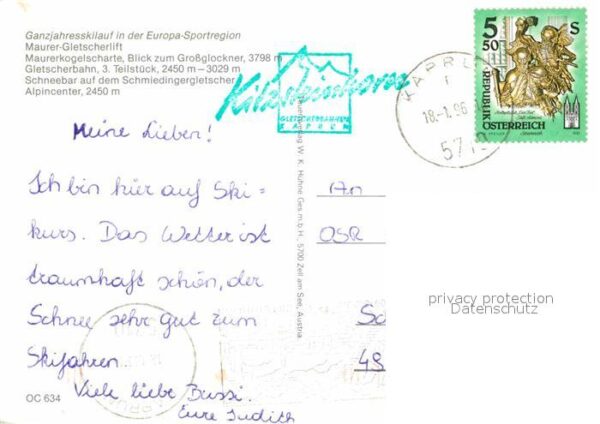 Ganzjahresskilauf in der Europa-Sportregion
Maurer-Gletscherlift
Maurerkogelscharte, Blick zum Großglockner, 3798 m
Gletscherbahn, 3. Teilstück, 2450 m – 3029 m
Schneebar auf dem Schmiedingergletscher
Alpincenter, 2450 m
Kitzsteinhorn
GLETSCHERBAHNEN
KAPRUN
KAPRUN
18.-1.96
5710
5 50 S
REPUBLIK
ÖSTERREICH
Meine Lieben!
Ich bin hier auf Ski=
kurs. Das Wetter ist
traumhaft schön, der
Schnee sehr gut zum
Skifahren.
Viele liebe Bussi.
Eure Judith
W. K. Hühne Ges.m.b.H., 5700 Zell am See, Austria.
An
OSR
Sc
49
privacy protection
Datenschutz
OC 634